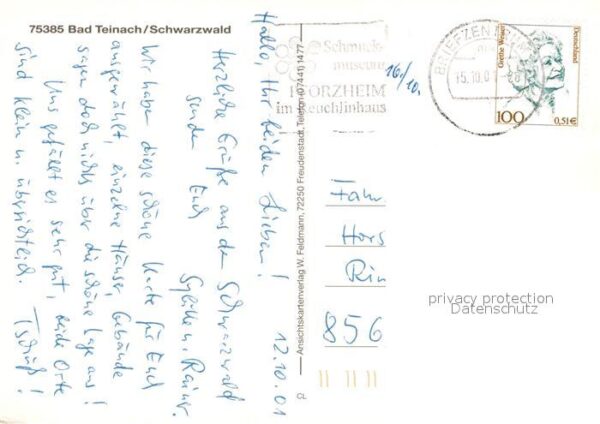 75385 Bad Teinach/Schwarzwald
12.10.01
Hallo, Ihr beiden Lieben!
Herzliche Grüße aus dem Schwarzwald
senden Euch
Sybille u. Rainer.
Wir haben diese schöne Karte für Euch
ausgewählt, einzelne Häuser, Gebäude
sagen doch nichts über die schöne Lage aus!
Uns gefällt es sehr gut, beide Orte
sind klein u. übersichtlich. Tschüß!
Ansichtskartenverlag W. Feldmann, 72250 Freudenstadt, Telefon (07441) 1477
Schmuck-
museum
PFORZHEIM
im Reuchlinhaus
16./10.
BRIEFZENTRUM
15.10.01
Grethe Weiser
Deutschland
100
0,51 €
Fam.
Hors
Rin
856
privacy protection
Datenschutz